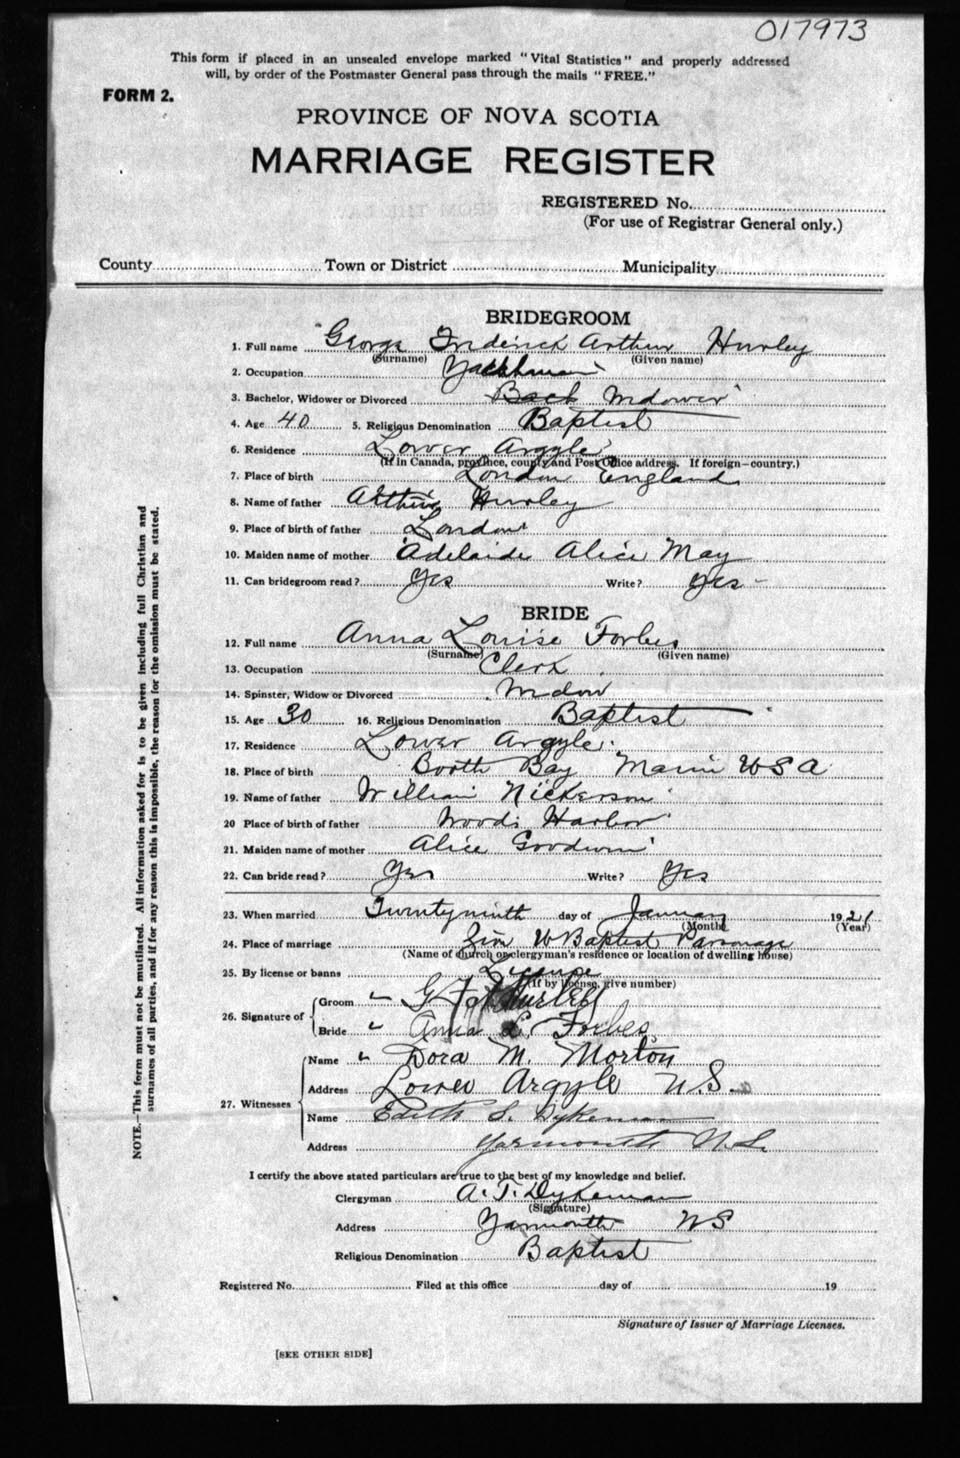 017973
This form if placed in an unsealed envelope marked "Vital Statistics" and properly addressed
will, by order of the Postmaster General pass through the mails "FREE."
FORM 2.
PROVINCE OF NOVA SCOTIA
MARRIAGE REGISTER
REGISTERED No.
(For use of Registrar General only.)
County Town or District Municipality
BRIDEGROOM
1. Full name George Frederick Arthur Hurley
(Surname) (Given name)
2. Occupation
3. Bachelor, Widower or Divorced Bach Widower
4. Age 40 5. Religious Denomination Baptist
6. Residence Lower Argyle
(If in Canada, province, county and Post Office address. If foreign—country.)
7. Place of birth London England
8. Name of father Arthur Hurley
9. Place of birth of father London
10. Maiden name of mother Adelaide Alice May
11. Can bridegroom read? Yes Write? yes
BRIDE
12. Full name Anna Louise Forbes
(Surname) (Given name)
13. Occupation Clerk
14. Spinster, Widow or Divorced Widow
15. Age 30 16. Religious Denomination Baptist
17. Residence Lower Argyle
18. Place of birth Booth Bay Maine USA
19. Name of father William Nickerson
20 Place of birth of father Woods Harbor
21. Maiden name of mother Alice Goodwin
22. Can bride read? Yes Write? Yes
23. When married Twentyninth day of January 1921
(Month) (Year)
24. Place of marriage Baptist Parsonage
(Name of church or clergyman's residence or location of dwelling house)
25. By license or banns License
(If by license, give number)
26. Signature of Groom G F A Hurley
Bride Anna L. Forbes
27. Witnesses Name Dora M. Morton
Address Lower Argyle N.S.
Name Edith S. Dykeman
Address Yarmouth N.S.
I certify the above stated particulars are true to the best of my knowledge and belief.
Clergyman A. T. Dykeman
(Signature)
Address Yarmouth NS
Religious Denomination Baptist
Registered No. Filed at this office day of 19
Signature of Issuer of Marriage Licenses.
[SEE OTHER SIDE]
NOTE.—This form must not be mutilated. All information asked for is to be given including full Christian and
surnames of all parties, and if for any reason this is impossible, the reason for the omission must be stated.